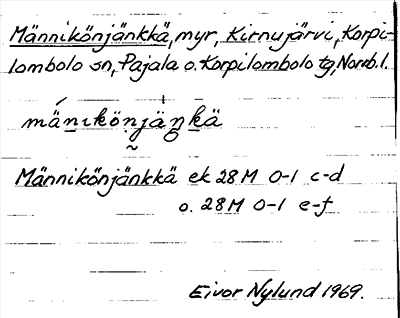 Männikönjänkkä, myr, Kirnujärvi, Korpi-
lombolo sn, Pajala o. Korpilombolo tg, Norrb. l.
mäṉıkön̰jäŋkä
Männikönjänkkä ek 28 M 0-1 c-d
o. 28 M 0-1 e-f
Eivor Nylund 1969.